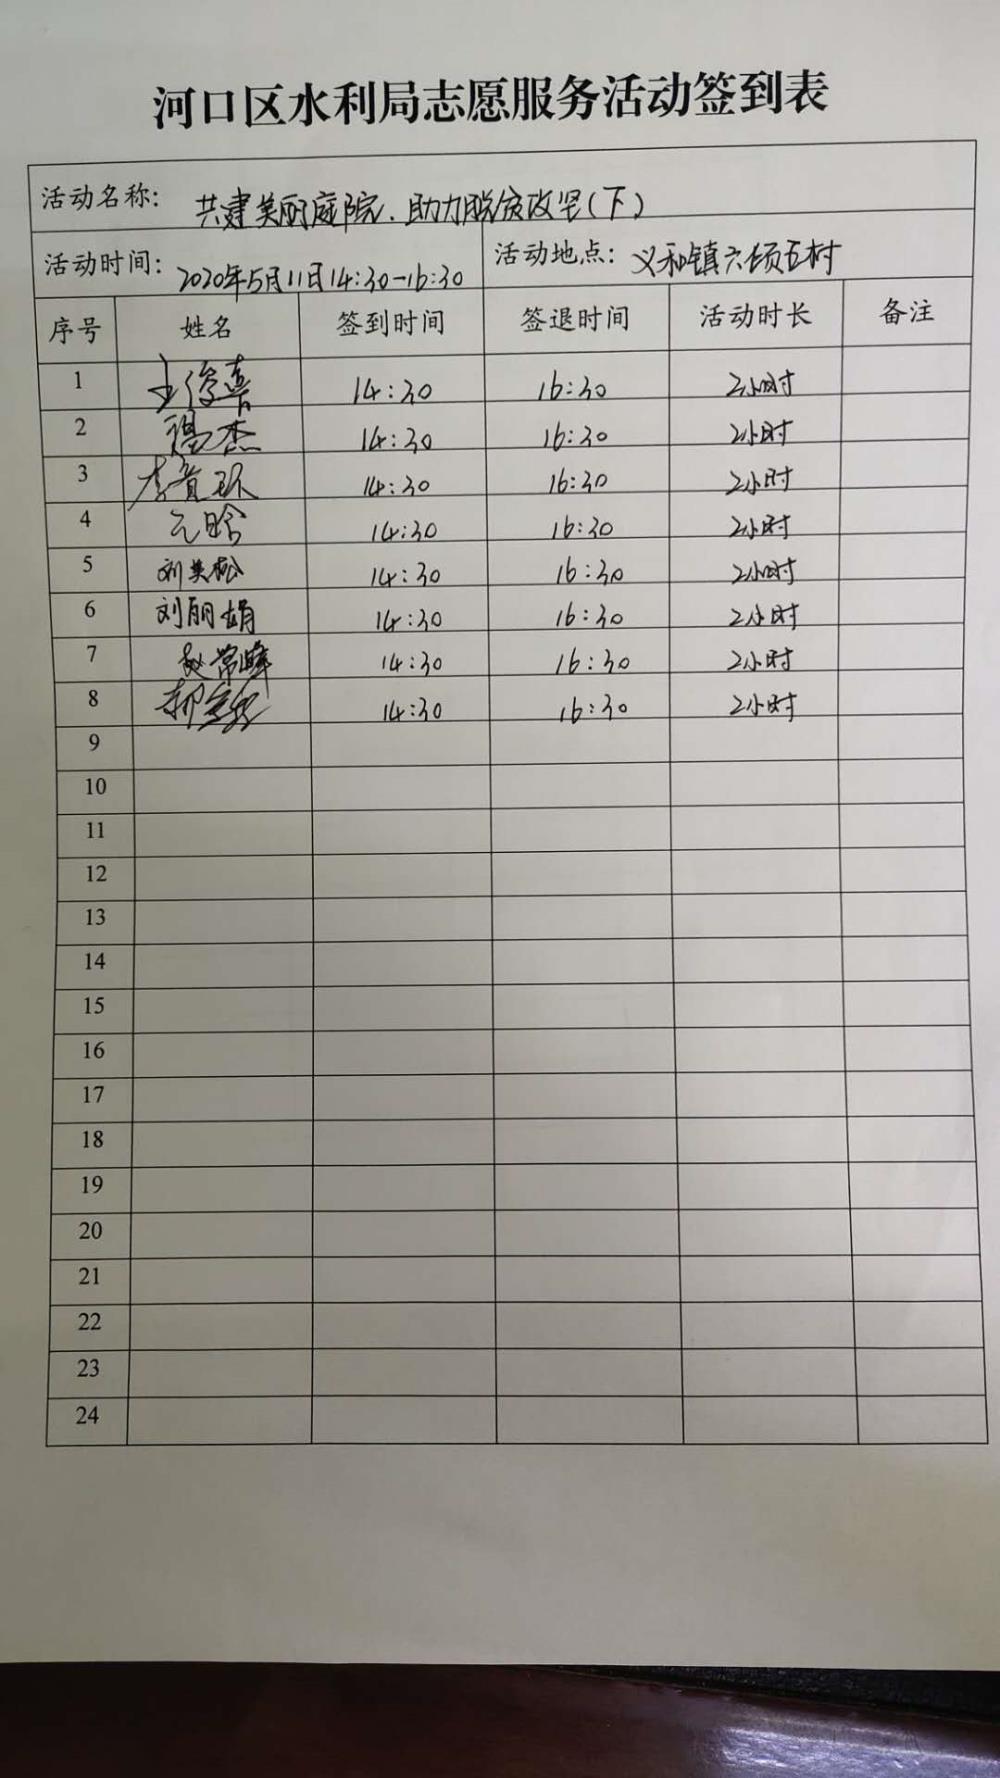 河口区水利局志愿服务活动签到表
活动名称: 共建美丽庭院、助力脱贫攻坚(下)
活动时间: 2020年5月11日14:30-16:30 活动地点: 义和镇六顷五村
序号 姓名 签到时间 签退时间 活动时长 备注
1 王俊喜 14:30 16:30 2小时
2 杰 14:30 16:30 2小时
3 李 14:30 16:30 2小时
4 14:30 16:30 2小时
5 刘英松 14:30 16:30 2小时
6 刘丽娟 14:30 16:30 2小时
7 赵常峰 14:30 16:30 2小时
8 14:30 16:30 2小时
9
10
11
12
13
14
15
16
17
18
19
20
21
22
23
24